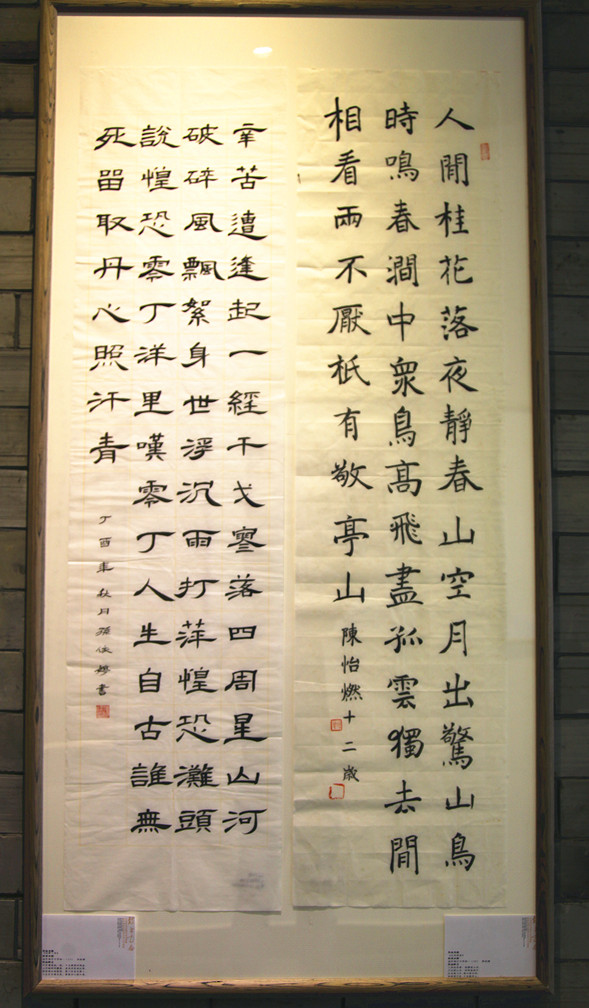 人閒桂花落夜靜春山空月出驚山鳥
時鳴春澗中衆鳥高飛盡孤雲獨去閒
相看兩不厭祇有敬亭山
陳怡燃十二歲
辛苦遭逢起一經干戈寥落四周星山河
破碎風飄絮身世浮沉雨打萍惶恐灘頭
說惶恐零丁洋里嘆零丁人生自古誰無
死留取丹心照汗青
丁酉年秋月孫俊書